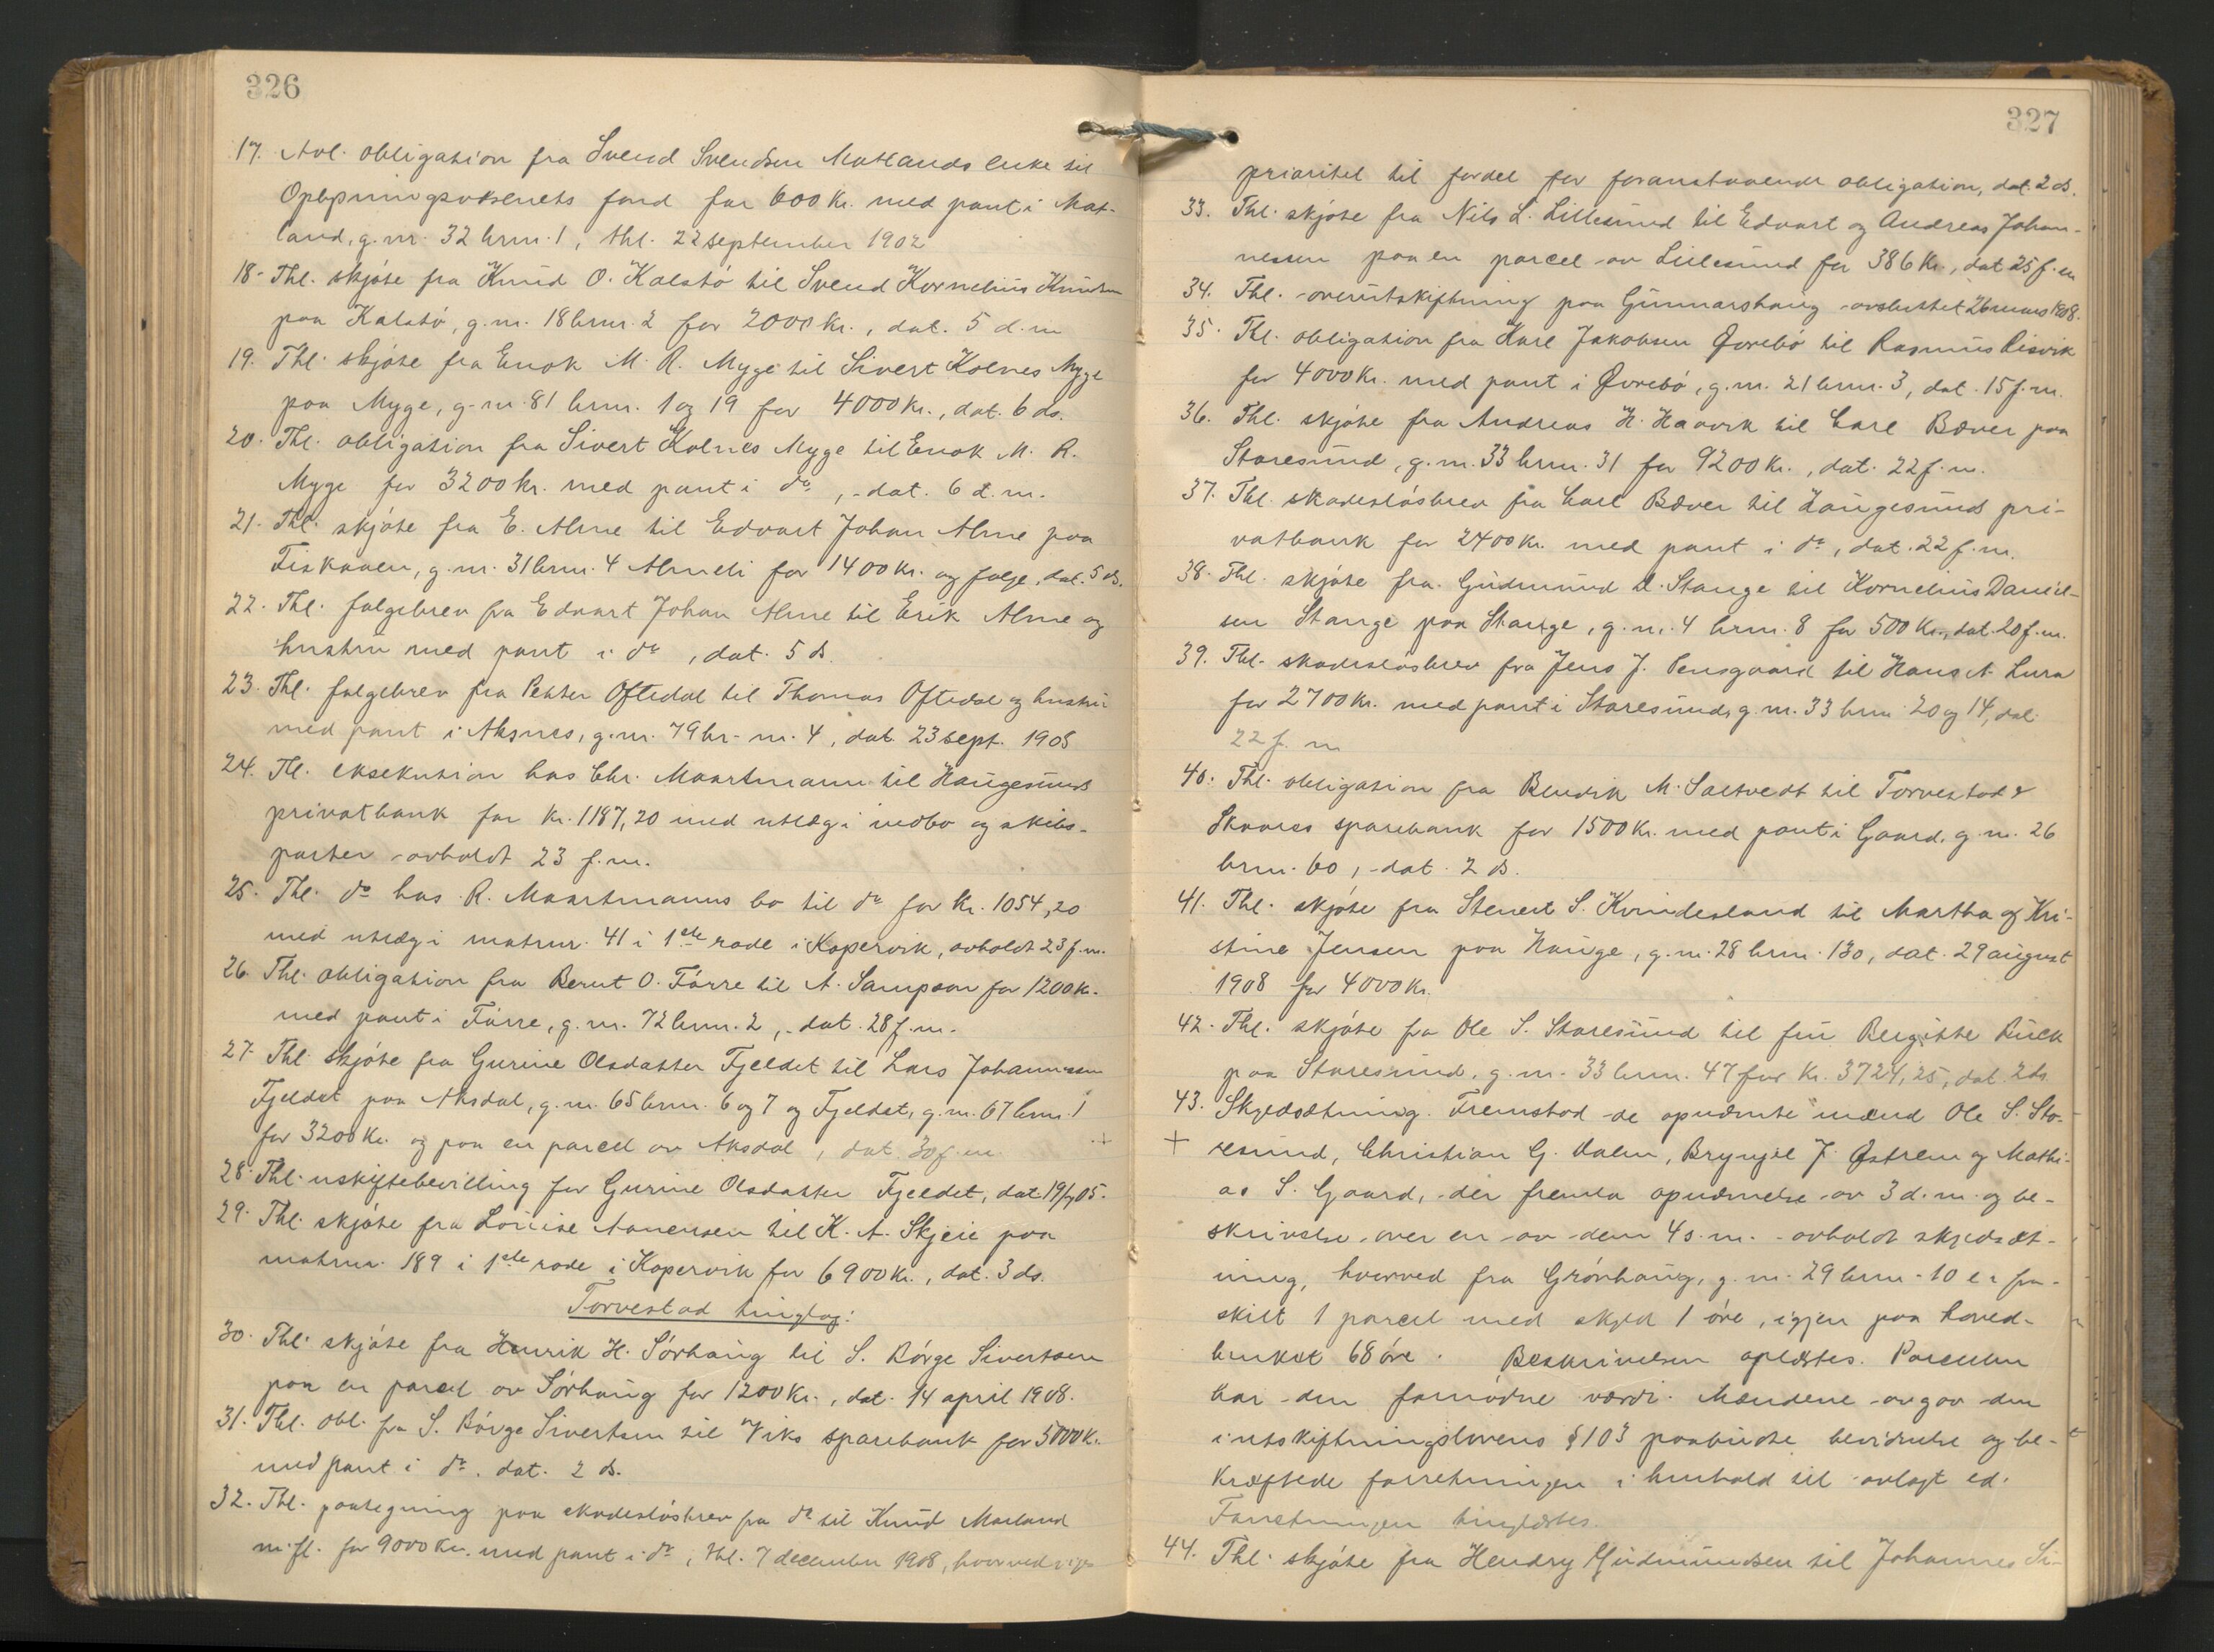 326
17. Avl. obligation fra Svend Svendsen Matlands enke til
Oplysningsvæsenets fond for 600 kr. med pant i Mat-
land, g.nr. 32 brnr. 1, thl. 22 september 1902
18. Thl. skjøte fra Knud O. Kalstø til Svend Kornelius Knudsen
paa Kalstø, g.nr. 18 brnr. 2 for 2000 kr., dat. 5 d.m
19. Thl. skjøte fra Enok M. R. Myge til Sivert Kolnes Myge
paa Myge, g.nr. 81 brnr. 1 og 19 for 4000 kr., dat. 6 ds.
20. Thl. obligation fra Sivert Kolnes Myge til Enok M. R.
Myge for 3200 kr. med pant i do, dat. 6 d.m.
21. Thl. skjøte fra E. Alme til Edvart Johan Alme paa
Fiskaaen, g.nr. 31 brnr. 4 Almeli for 1400 kr. og følge, dat. 5 ds.
22. Thl. følgebrev fra Edvart Johan Alme til Erik Alme og
hustru med pant i do, dat. 5 ds.
23. Thl. følgebrev fra Petter Oftedal til Thomas Oftedal og hustru
med pant i Aksnes, g.nr. 79 br.nr. 4, dat. 23 sept. 1908
24. Tl. eksekution hos Chr. Maartmann til Haugesunds
privatbank for kr. 1187,20 med utlæg i indbo og skibs-
parter avholdt 23 f.m.
25. Thl. do hos R. Maartmanns bo til do for kr. 1054,20
med utlæg i matrnr. 41 i 1ste rode i Kopervik, avholdt 23 f.m.
26. Thl. obligation fra Bernt O. Førre til A. Sampson for 1200 kr.
med pant i Førre, g.nr. 72 brnr. 2, dat. 28 f.m.
27. Thl. skjøte fra Gurine Olsdatter Fjeldet til Lars Johannessen
Fjeldet paa Aksdal, g.nr. 65 brnr. 6 og 7 og Fjeldet, g.nr. 67 brnr. 1
for 3200 kr. og paa en parcel av Aksdal, dat. 30 f.m. +
28. Thl. uskiftebevilling for Gurine Olsdatter Fjeldet, dat 19/7 05.
29. Thl. skjøte fra Louise Aanensen til K. A. Skjeie paa
matrnr. 189 i 1ste rode i Kopervik for 6900 kr., dat. 3 ds.
Torvestad tinglag:
30. Thl. skjøte fra Henrik H. Sørhaug til S. Børge Sivertsen
paa en parcel av Sørhaug for 1200 kr., dat. 14 april 1908.
31. Thl. obl. fra S. Børge Sivertsen til Viks sparebank for 5000 kr.
med pant i do. dat. 2 ds.
32. Thl. paategning paa skadesløsbrev fra do til Knud Maeland
m.fl. for 9000 kr. med pant i do, thl. 7 december 1908, hvorved viges
327
prioritet til fordel for foranstaaende obligation, dat. 2 ds.
33. Thl. skjøte fra Nils L. Lillesund til Edvart og Andreas Johan-
nessen paa en parcel av Lillesund for 386 kr., dat 25 f.m
34. Thl. overutskiftning paa Gunnarshaug avsluttet 26 mars 1908.
35. Thl. obligation fra Karl Jakobsen Øvrebø til Rasmus Risvik
for 4000 kr. med pant i Øvrebø, g.nr. 21 brnr. 3, dat. 15 f.m.
36. Thl. skjøte fra Andreas H. Haavik til Carl Bæver paa
Storesund, g.nr. 33 brnr. 31 for 9200 kr., dat. 22 f.m.
37. Thl. skadesløsbrev fra Carl Bæver til Haugesunds pri-
vatbank for 2400 kr. med pant i do, dat. 22 f.m.
38. Thl. skjøte fra Gudmund D. Stange til Kornelius Daniel-
sen Stange paa Stange, g.nr. 4 brnr. 8 for 500 kr., dat. 20 f.m.
39. Thl. skadesløsbrev fra Jens J. Pensgaard til Hans A. Lura
for 2700 kr. med pant i Storesund, g.nr. 33 brnr 20 og 14, dat.
22 f. m
40. Thl. obligation fra Bendik M. Saltvedt til Torvestad &
Skaares sparebank for 1500 kr. med pant i Gaard, g.nr. 26
brnr. 60, dat. 2 ds.
41. Thl. skjøte fra Stenert S. Kvindesland til Martha og Kri-
stine Jensen paa Hauge, g.nr. 28 brnr. 130, dat. 29 august
1908 for 4000 kr.
42. Thl. skjøte fra Ole S. Storesund til fru Bergitte Rück
paa Storesund, g.nr. 33 brnr. 47 for kr. 3724,25, dat. 2 ds.
43. Skyldsætning. Fremstod de opnævnte mænd Ole S. Sto-
+ resund, Christian G. Valen, Bryngel J. Østrem og Mathi-
as S. Gaard, der fremla opnævnelse av 3 d.m. og be-
skrivelse over en av dem 4 s.m. avholdt skyldsæt-
ning, hvorved fra Grønhaug, g.nr. 29 brnr. 10 er fra-
skilt 1 parcel med skyld 1 øre, igjen paa hoved-
bruket 68 øre. Beskrivelsen oplæstes. Parcellen
har den fornødne værdi. Mændene avgav den
i utskiftningslovens § 103 paabudte bevidnelse og be-
kræftede forretningen i henhold til avlagt ed.
Forretningen tinglæstes.
44. Thl. skjøte fra Hendry Gudmundsen til Johannes Si-